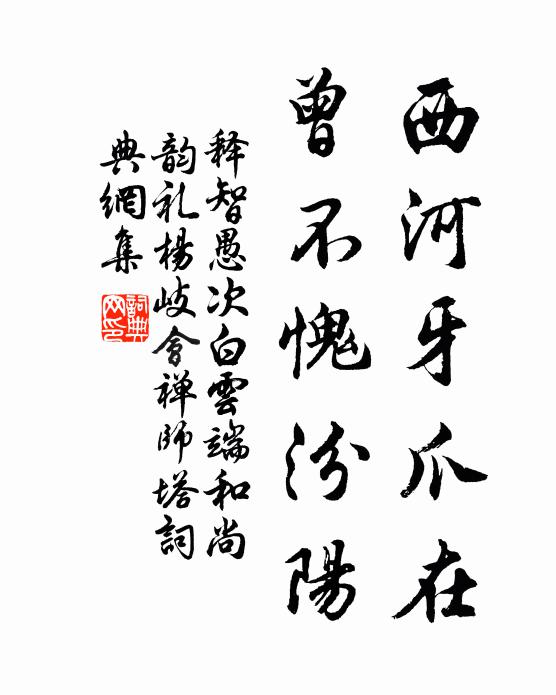 西河牙爪在
曾不愧汾陽
释智愚次白雲端和尚
韵礼楊岐會禅師塔詞
典網集
詞典
网印